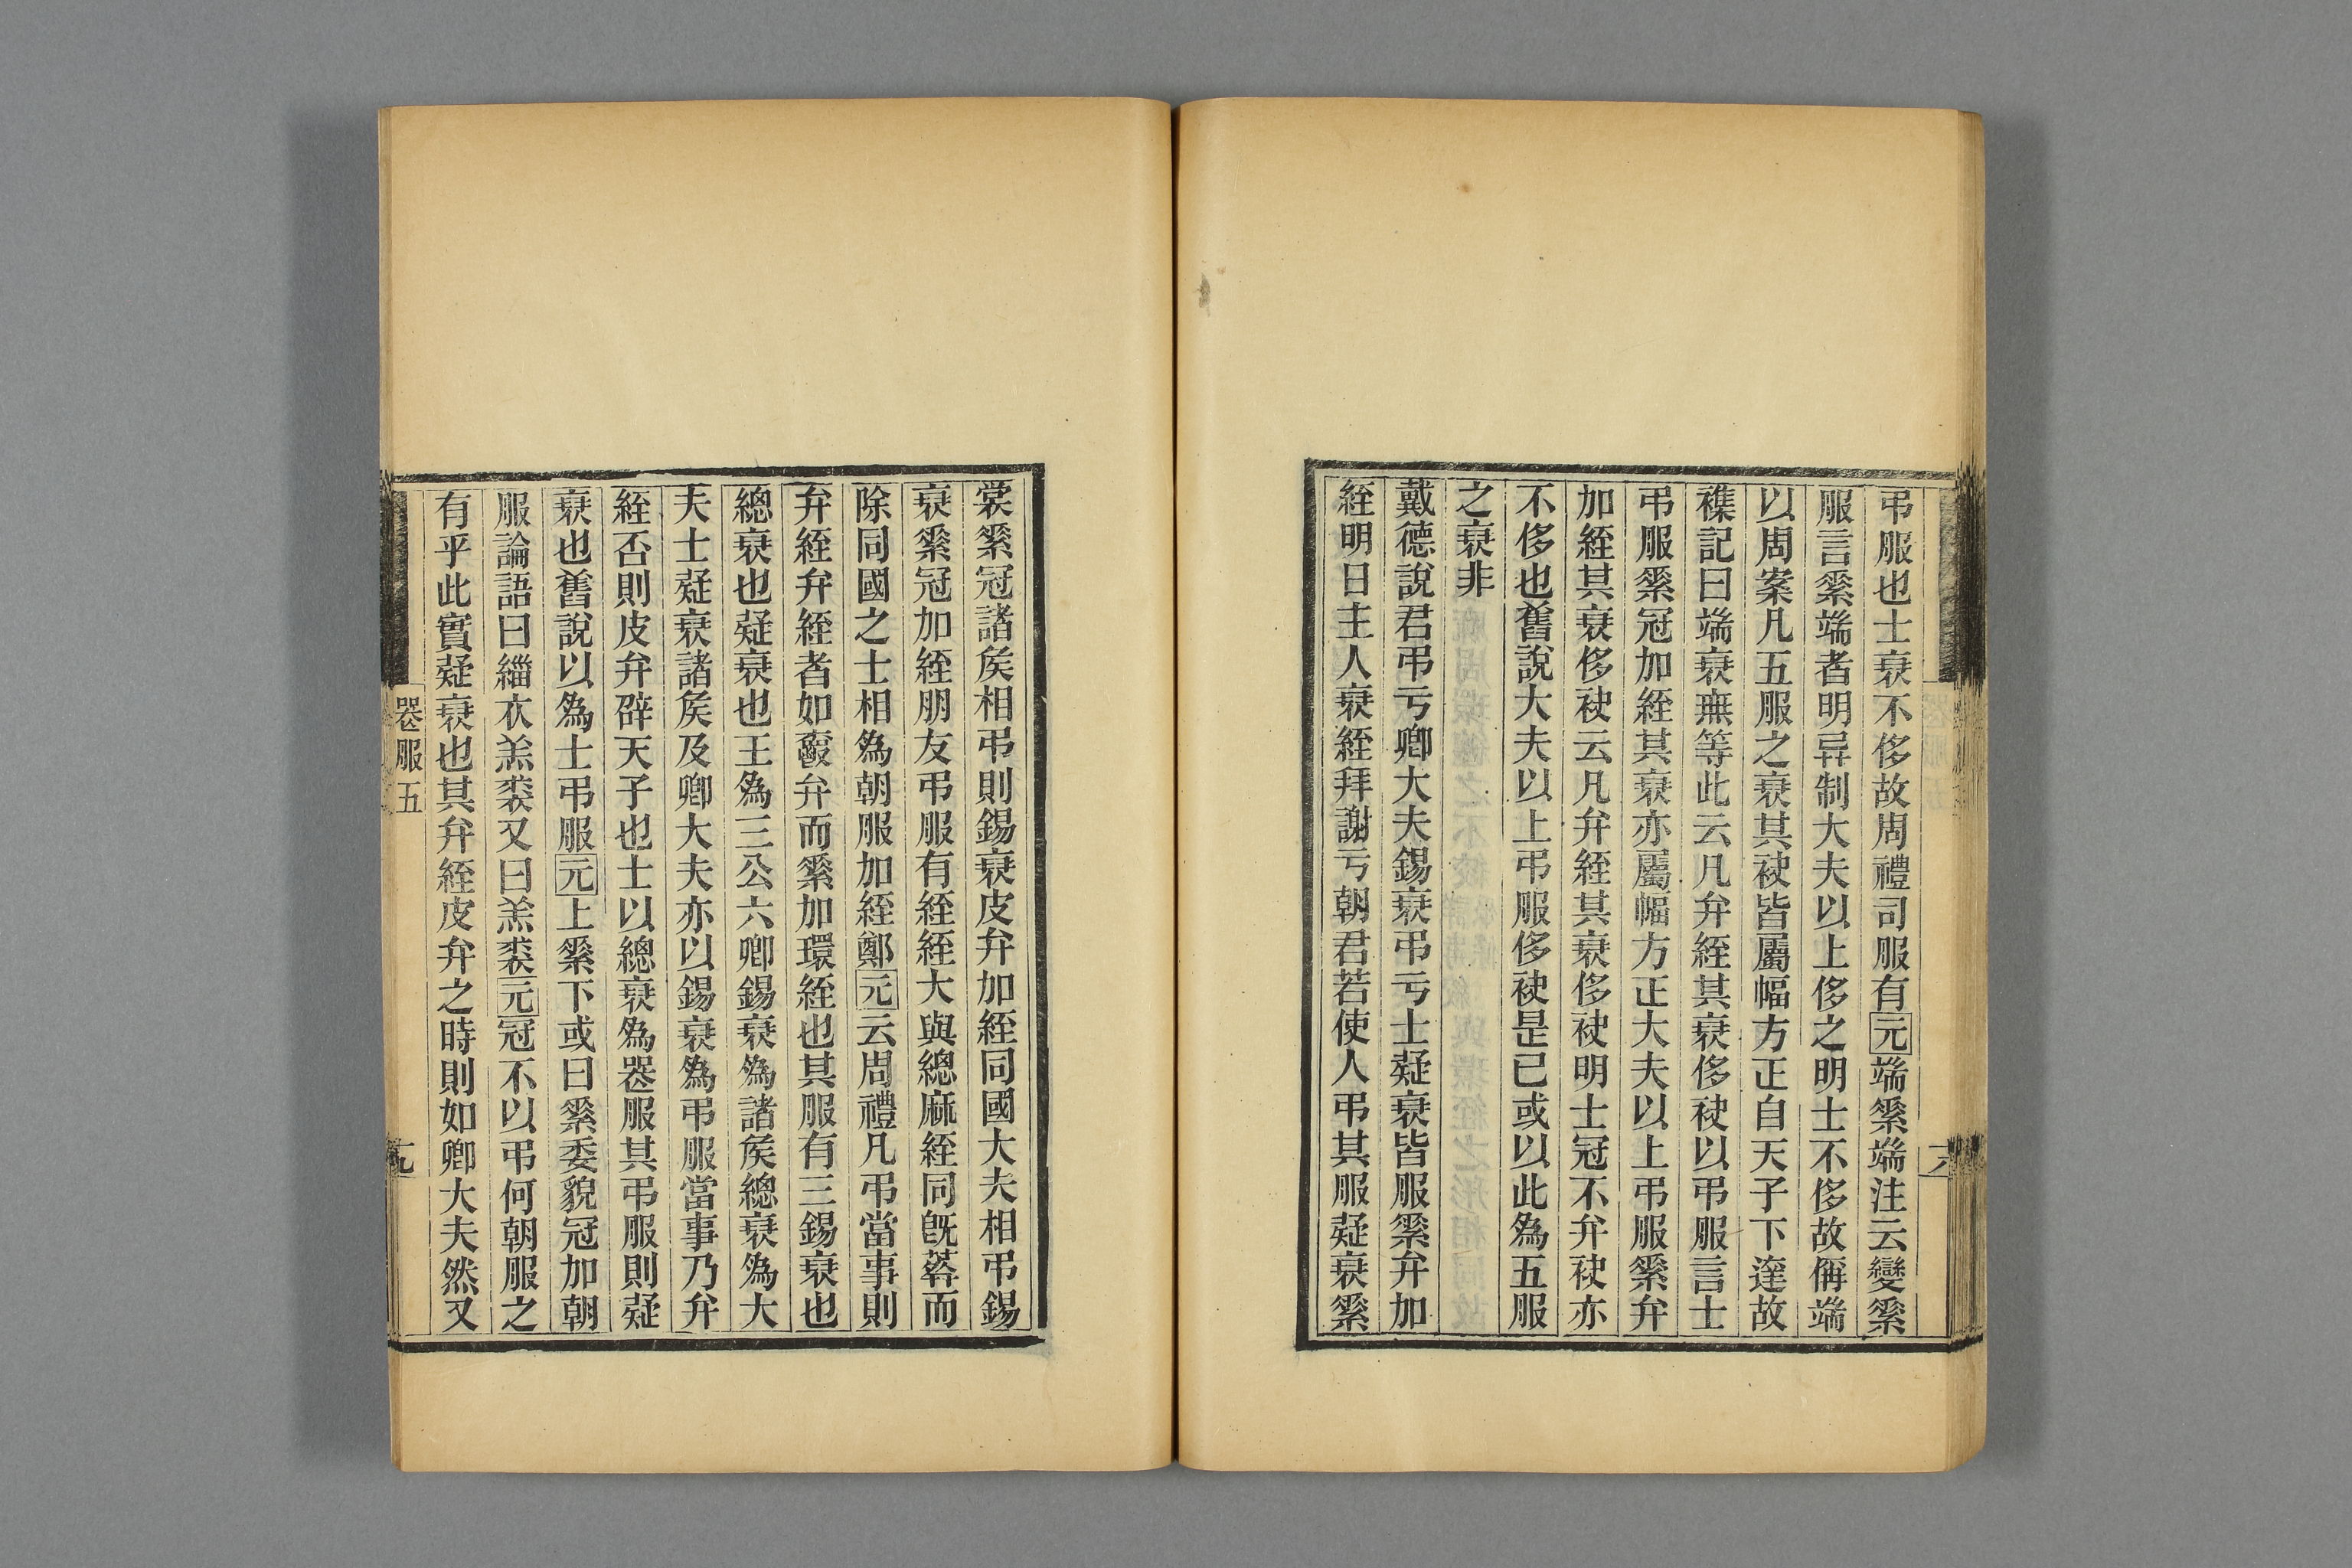 弔服也士衰不侈故周禮司服有元端𥿍端注云變𥿍
服言𥿍端者明异制大夫以上侈之明士不侈故偁端
以周案凡五服之衰其袂皆屬幅方正自天子下達故
襍記曰端衰無等此云凡弁絰其衰侈袂以弔服言士
弔服𥿍冠加絰其衰亦屬幅方正大夫以上弔服𥿍弁
加絰其衰侈袂云凡弁絰其衰侈袂明士冠不弁袂亦
不侈也舊說大夫以上弔服侈袂是已或以此為五服
之衰非
戴德說君弔亏卿大夫錫衰弔亏士疑衰皆服𥿍弁加
絰明日主人衰絰拜謝亏朝君若使人弔其服疑衰𥿍
裳𥿍冠諸矦相弔則錫衰皮弁加絰同國大夫相弔錫
衰𥿍冠加絰朋友弔服有絰絰大與緦麻絰同旣葬而
除同國之士相為朝服加絰鄭元云周禮凡弔當事則
弁絰弁絰者如爵弁而𥿍加環絰也其服有三錫衰也
緦衰也疑衰也王為三公六卿錫衰為諸矦緦衰為大
夫士疑衰諸矦及卿大夫亦以錫衰為弔服當事乃弁
絰否則皮弁辟天子也士以緦衰為喪服其弔服則疑
衰也舊說以為士弔服元上𥿍下或曰𥿍委貌冠加朝
服論語曰緇衣羔裘又曰羔裘元冠不以弔何朝服之
有乎此實疑衰也其弁絰皮弁之時則如卿大夫然又
喪服五
十九